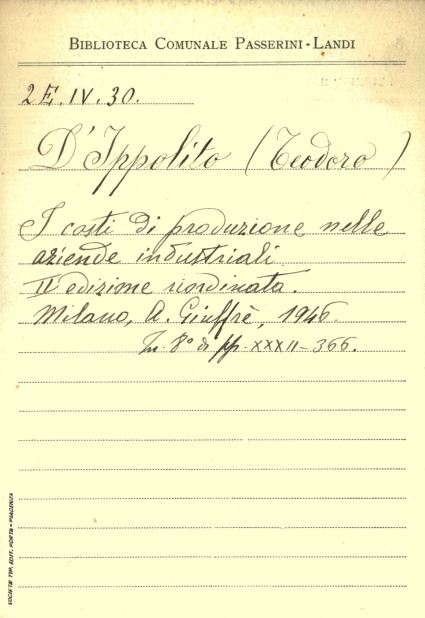 BIBLIOTECA COMUNALE PASSERINI-LANDI
2E.IV.30.
D'Ippolito (Teodoro)
I costi di produzione nelle
aziende industriali
II edizione riordinata.
Milano, A. Giuffrè, 1946.
In-8° di pp. XXXII-366.
SOCIETÀ TIP. EDIT. PORTA - PIACENZA